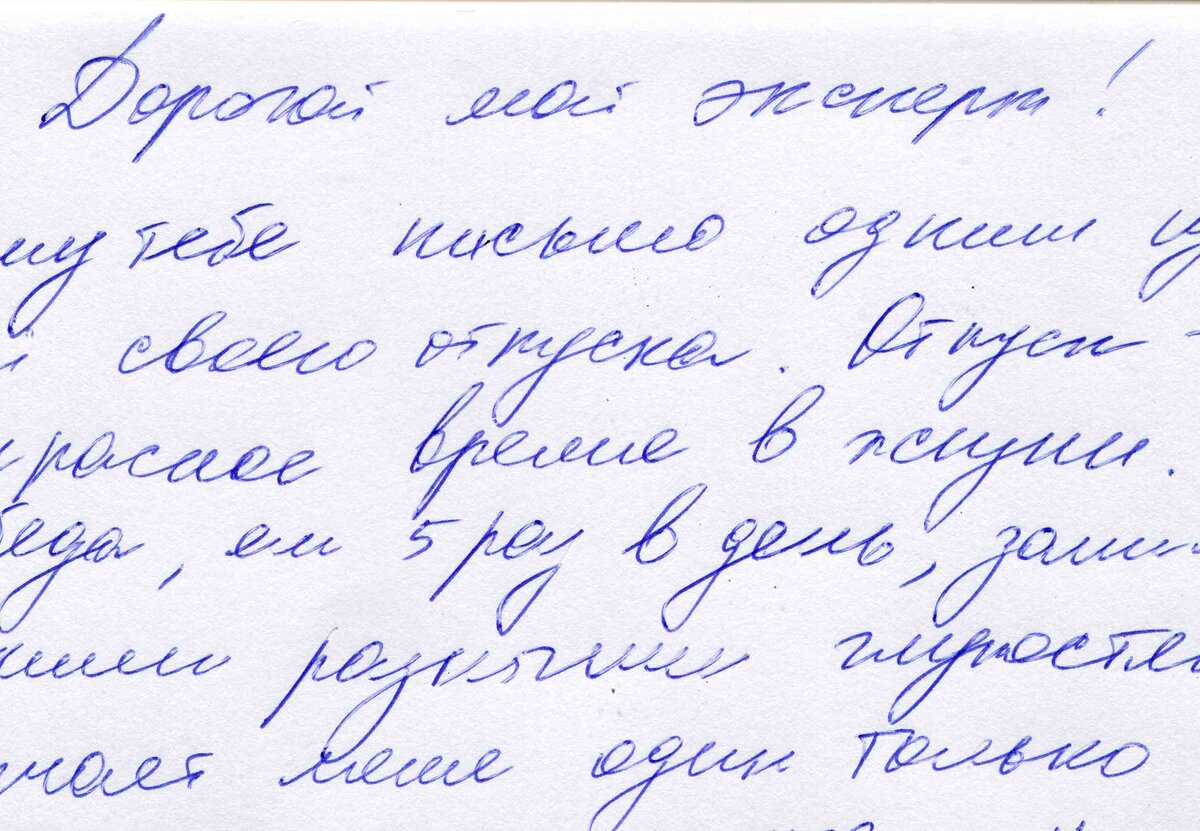 Дорогой мой эксперт!
шу тебе письмо одним из
й своего отпуска. Отпуск -
красное время в жизни.
беда, ем 5 раз в день, зани-
ними разными глупостям
чает меня один только